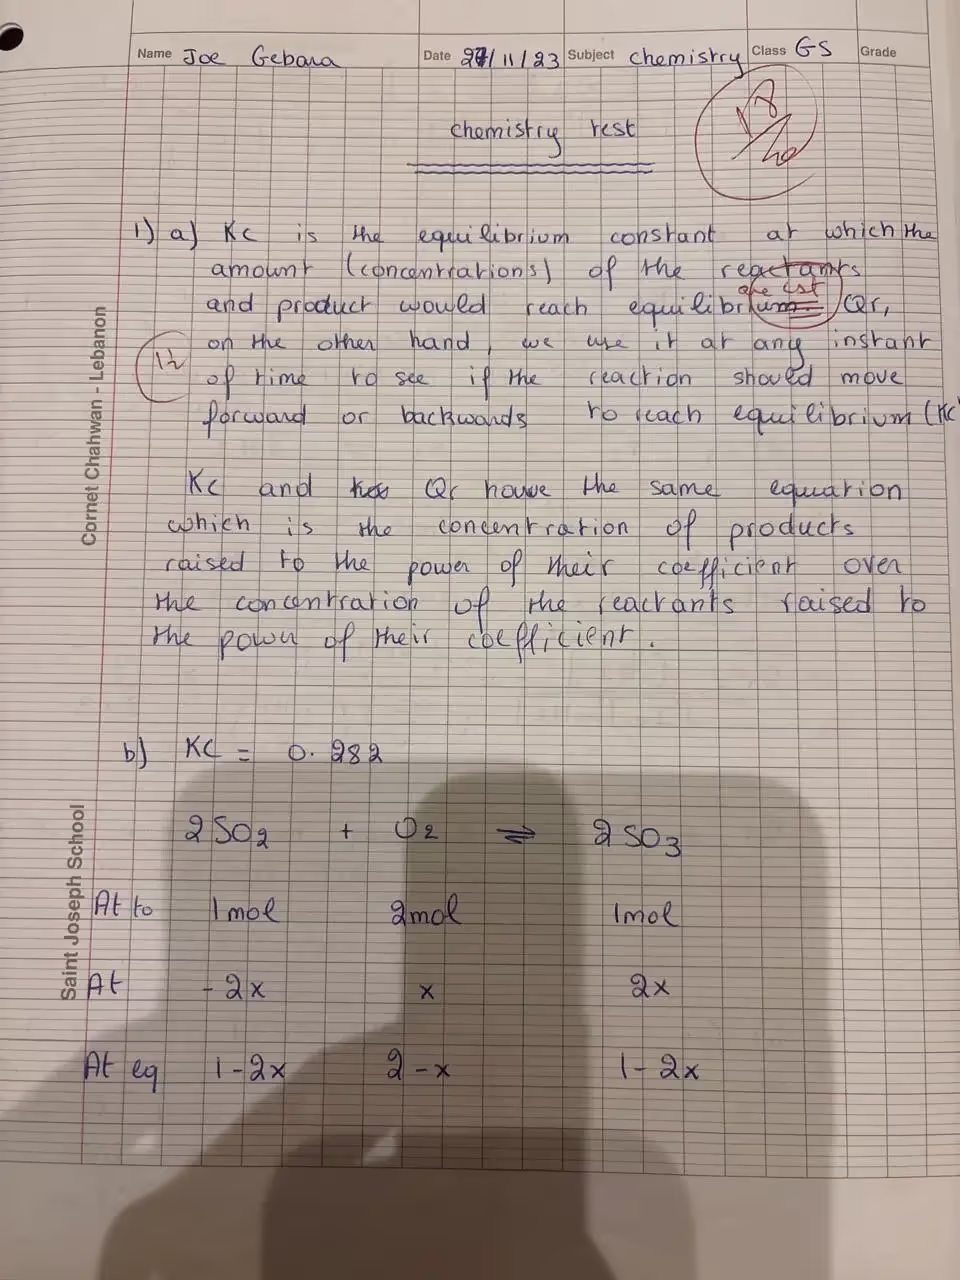 Name Joe Gebara Date 27/11/23 Subject chemistry Class GS Grade
chemistry test
18/20
1) a) Kc is the equilibrium constant at which the
amount (concentrations) of the reactants
are cst
and product would reach equilibrium Qr,
on the other hand, we use it at any instant
1½
of time to see if the reaction should move
forward or backwards to reach equilibrium (Kc)
Kc and Qr have the same equation
which is the concentration of products
raised to the power of their coefficient over
the concentration of the reactants raised to
the power of their coefficient.
b) Kc = 0.282
2SO2 + O2 ⇌ 2SO3
At to 1mol 2mol 1mol
At - 2x x 2x
At eq 1-2x 2-x 1-2x
Cornet Chahwan - Lebanon
Saint Joseph School